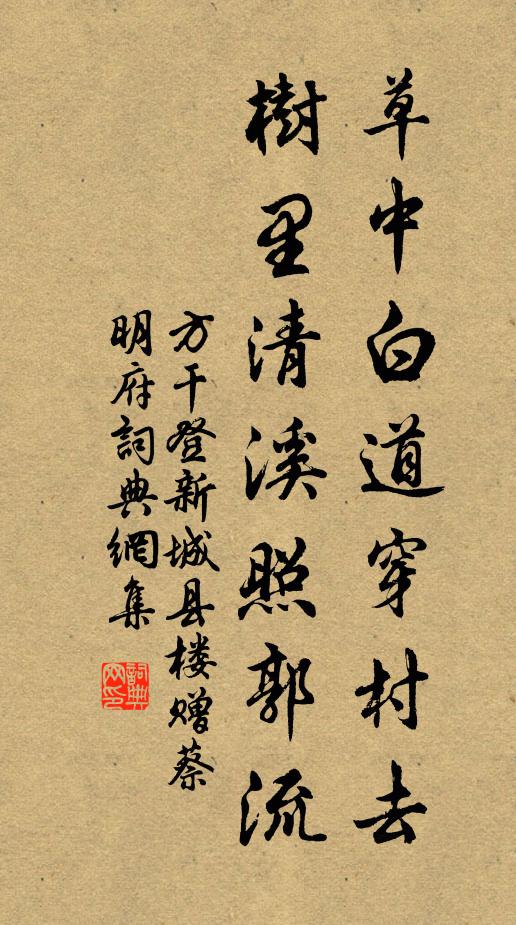 草中白道穿村去
樹里清溪照郭流
方干登新城县楼赠蔡
明府詞典網集
詞典
网印